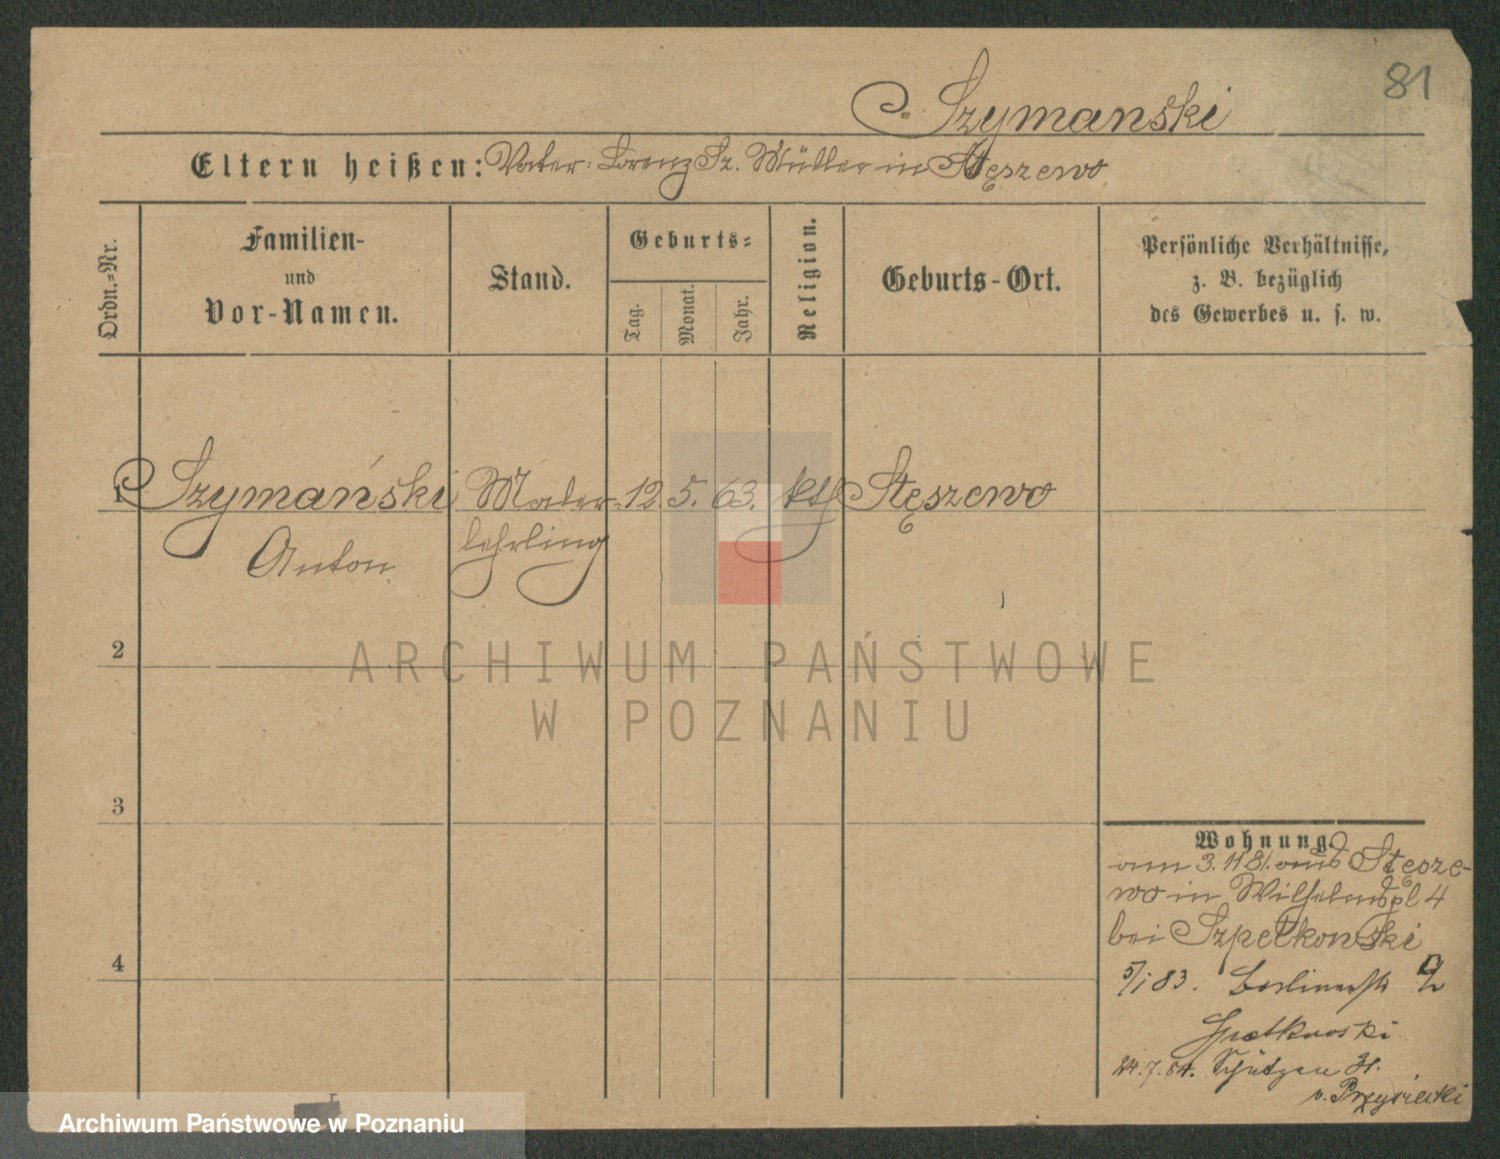 81
Szymanski
Eltern heißen: Vater: Lorenz Sz. Müller in Stęszewo
Ordn.-Nr.
Familien-
und
Vor-Namen.
Stand.
Geburts-
Tag.
Monat.
Jahr.
Religion.
Geburts-Ort.
Persönliche Verhältnisse,
z. B. bezüglich
des Gewerbes u. s. w.
1 Szymański Maler- 12. 5. 63. kth Stęszewo
Anton lehrling
2
3
4
Wohnung.
am 3.11 81. aus Stęsze-
wo in Wilhelmspl 4
bei Szpetkowski
5/1 83. Berlinerstr
24.7.84. Schützen
v. Przysiecki
ARCHIWUM PAŃSTWOWE
W POZNANIU
Archiwum Państwowe w Poznaniu